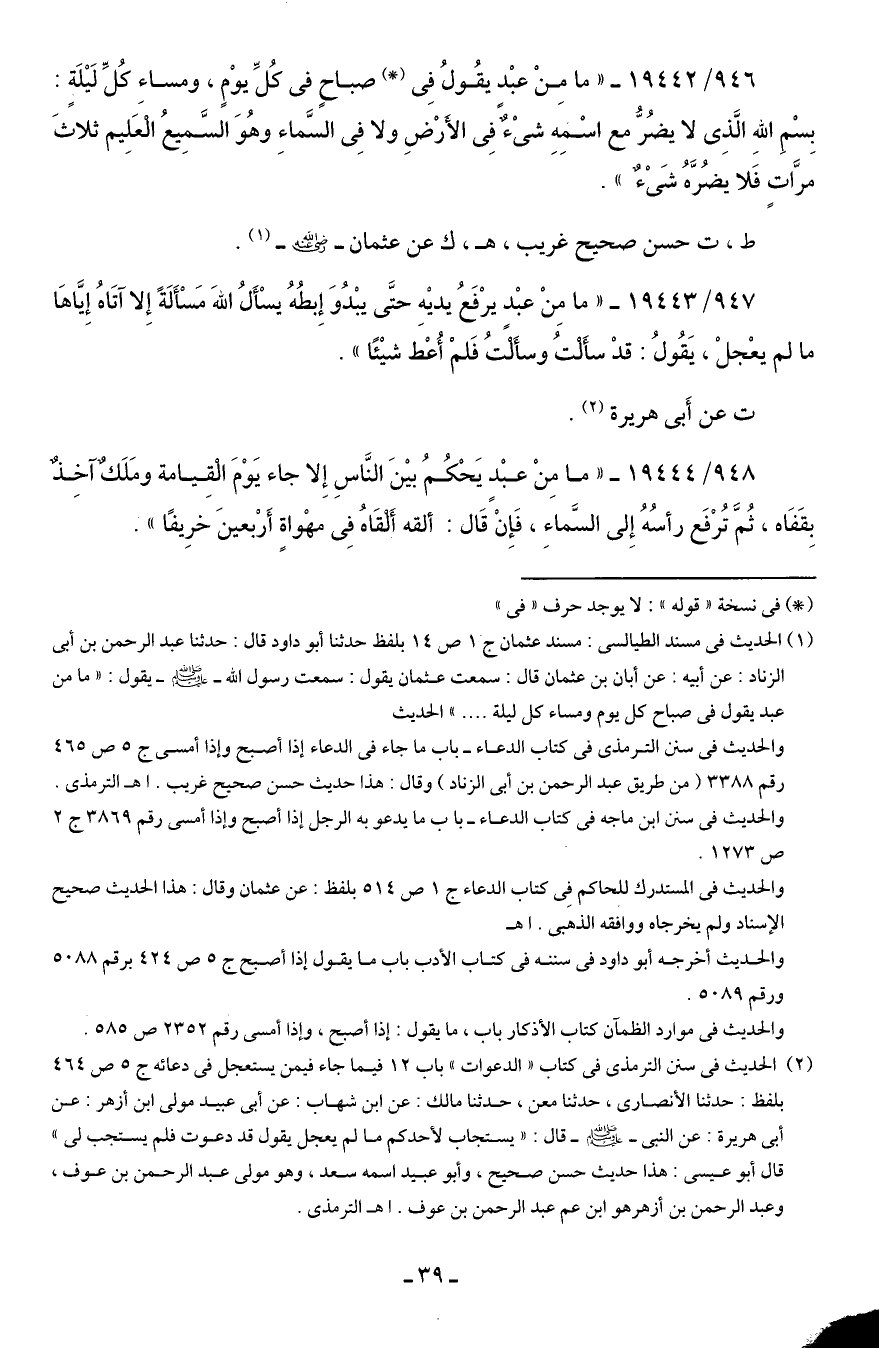 ١٩٤٤٢/٩٤٦ ـ « ما مِـنْ عبْدٍ يقُـولُ فِى (*) صبـاحٍ فِى كُلِّ يوْمٍ ، ومسـاءِ كُلِّ لَيْلَةٍ :
بِسْمِ اللهِ الَّذِى لا يضُرُّ مع اسْـمِهِ شىْءٌ فِى الأَرْضِ ولا فِى السَّماءِ وهُوَ السَّمِيعُ الْعَلِيم ثلاثَ
مرَّاتٍ فَلا يضُرُّهُ شَىْءٌ » .
ط ، ت حسن صحيح غريب ، هـ ، ك عن عثمان ـ رضي الله عنه ـ (١) .
١٩٤٤٣/٩٤٧ ـ « ما مِنْ عبْدٍ يرْفَعُ يديْهِ حتَّى يبْدُوَ إِبطُهُ يسْأَلُ اللهَ مَسْأَلَةً إِلا آتَاهُ إِيَّاهَا
ما لم يعْجلْ ، يَقُولُ : قدْ سأَلْتُ وسأَلْتُ فَلمْ أُعْط شيْئًا » .
ت عن أَبى هريرة (٢) .
١٩٤٤٤/٩٤٨ ـ « مـا مِنْ عبْـدٍ يَحْكُـمُ بيْنَ النَّاسِ إِلا جاء يَوْمَ الْقِيـامة ومَلَكٌ آخِـذٌ
بِقَفَاه ، ثُمَّ تُرْفَع رأسُهُ إِلى السَّماءِ ، فَإِنْ قَال : ألقه أَلْقَاهُ فِى مهْواةٍ أرْبعينَ خريفًا » .
(*) فى نسخة « قوله » : لا يوجد حرف « فى »
(١) الحديث فى مسند الطيالسى : مسند عثمان ج ١ ص ١٤ بلفظ حدثنا أبو داود قال : حدثنا عبد الرحمن بن أبى
الزناد : عن أبيه : عن أبان بن عثمان قال : سمعت عـثمان يقول : سمعت رسول الله ـ ﷺ ـ يقول : « ما من
عبد يقول فى صباح كل يوم ومساء كل ليلة .... » الحديث
والحديث فى سنن التـرمذى فى كتاب الدعـاء ـ باب ما جاء فى الدعاء إذا أصبح وإذا أمسـى ج ٥ ص ٤٦٥
رقم ٣٣٨٨ ( من طريق عبد الرحمن بن أبى الزناد ) وقال : هذا حديث حسن صحيح غريب . ا هـ الترمذى .
والحديث فى سنن ابن ماجه فى كتاب الدعـاء ـ با ب ما يدعو به الرجل إذا أصبح وإذا أمسى رقم ٣٨٦٩ ج ٢
ص ١٢٧٣ .
والحديث فى المستدرك للحاكم فى كتاب الدعاء ج ١ ص ٥١٤ بلفظ : عن عثمان وقال : هذا الحديث صحيح
الإسناد ولم يخرجاه ووافقه الذهبى . ا هـ
والحـديث أخرجـه أبو داود فى سننـه فى كتـاب الأدب باب مـا يقـول إذا أصـبح ج ٥ ص ٤٢٤ برقم ٥٠٨٨
ورقم ٥٠٨٩ .
والحديث فى موارد الظمآن كتاب الأذكار باب ، ما يقول : إذا أصبح ، وإذا أمسى رقم ٢٣٥٢ ص ٥٨٥ .
(٢) الحديث فى سنن الترمذى فى كتاب « الدعوات » باب ١٢ فيـما جاء فيمن يستعجل فى دعائه ج ٥ ص ٤٦٤
بلفظ : حدثنا الأنصـارى ، حدثنا معن ، حـدثنا مالك : عن ابن شهـاب : عن أبى عبيـد مولى ابن أزهر : عـن
أبى هريرة : عن النبى ـ ﷺ ـ قال : « يستـجاب لأحدكم مـا لم يعجل يقول قد دعـوت فلم يستـجب لى »
قال أبو عـيسى : هذا حديث حسن صحـيح ، وأبو عبـيد اسمه سـعد ، وهو مولى عبـد الرحـمن بن عوف ،
وعبد الرحمن بن أزهرهو ابن عم عبد الرحمن بن عوف . ا هـ الترمذى .
ـ ٣٩ ـ